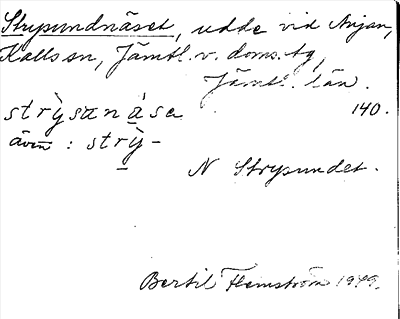 Strypundnäset, udde vid Anjan,
Kalls sn, Jämtl. v. doms. tg,
Jämtl. län.
strỳsanàsa 140.
även : strỳ-
N Strypundet.
Bertil Flemström 1949.